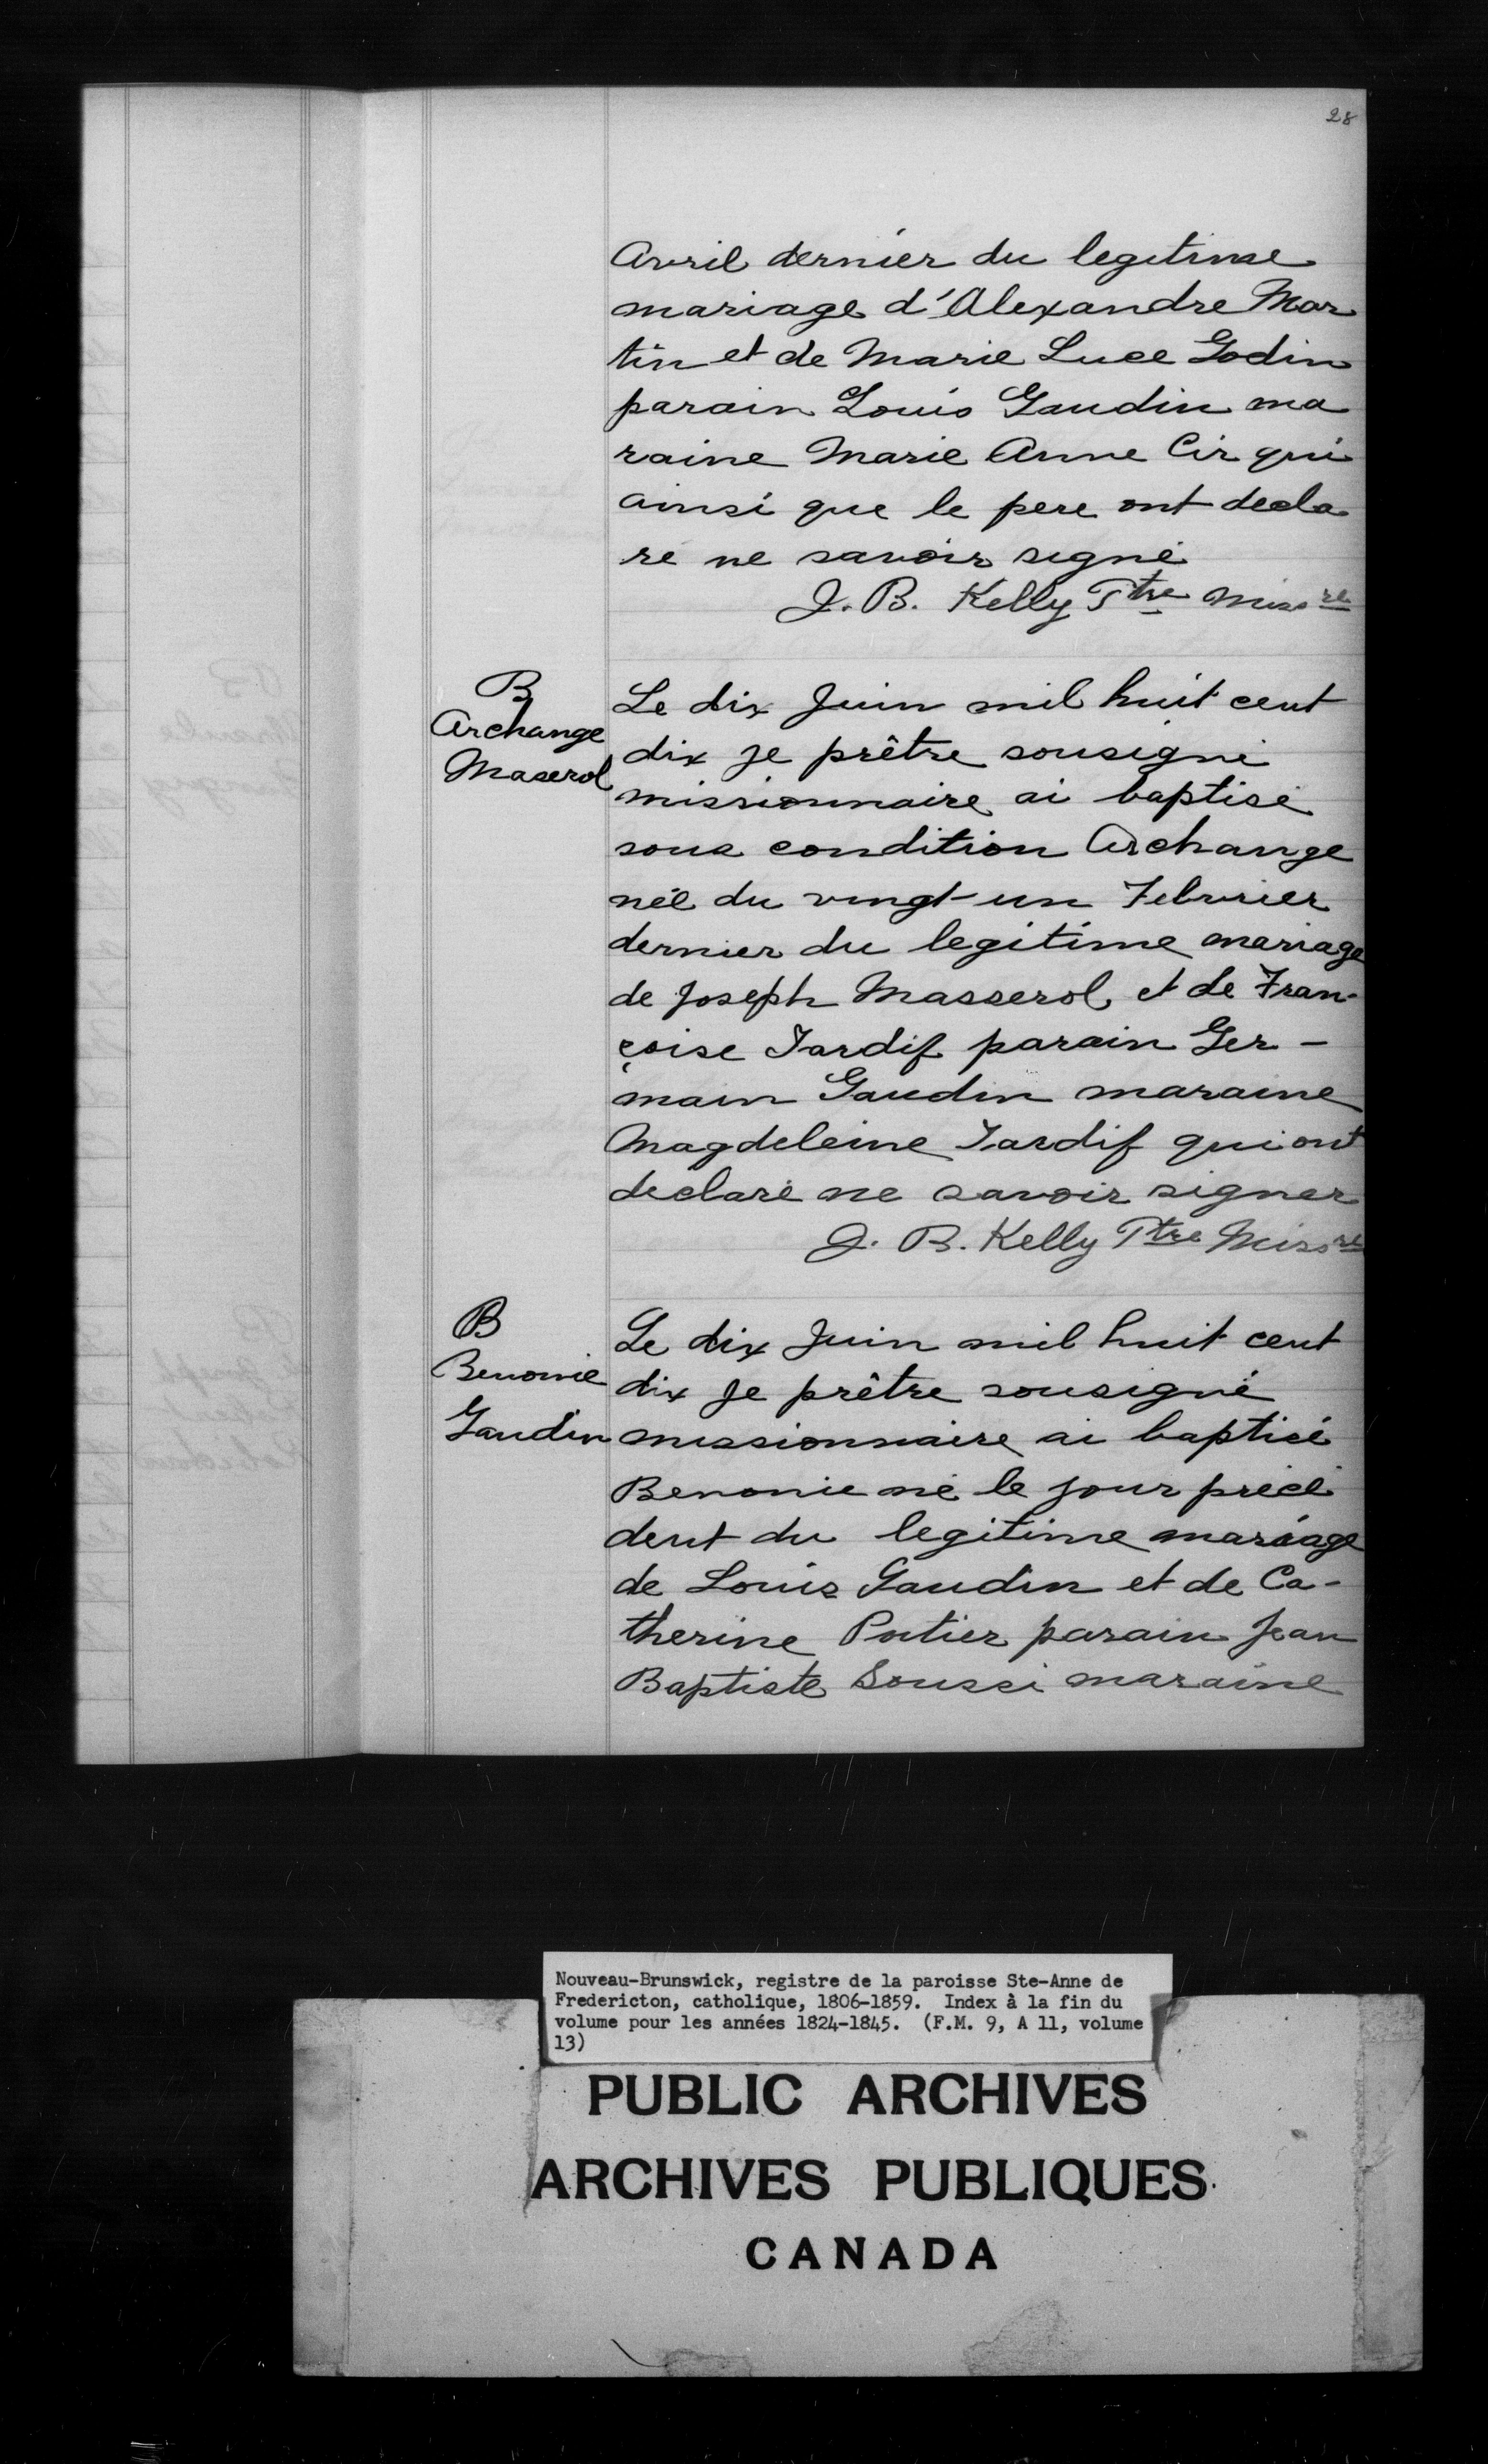 28
Avril dernier du legitime
mariage d'Alexandre Mar
tin et de Marie Luce Godin
parain Louis Gaudin ma
raine Marie Anne Cir qui
ainsi que le pere ont decla
ré ne savoir signé
J. B. Kelly Ptre Missre
B
Archange
Maserol
Le dix Juin mil huit cent
dix je prêtre sousigné
missionnaire ai baptisé
sous condition Archange
née du vingt-un Februier
dernier du legitime mariage
de Joseph Masserol et de Fran-
çoise Tardif parain Ger-
main Gaudin maraine
Magdeleine Tardif qui ont
declaré ne savoir signer
J. B. Kelly Ptre Missre
B
Benonie
Gaudin
Le dix Juin mil huit cent
dix je prêtre sousigné
missionnaire ai baptisé
Benonie né le jour précé
dent du legitime mariage
de Louis Gaudin et de Ca-
therine Potier parain Jean
Baptiste Soussi maraine
Nouveau-Brunswick, registre de la paroisse Ste-Anne de
Fredericton, catholique, 1806-1859. Index à la fin du
volume pour les années 1824-1845. (F.M. 9, A 11, volume
13)
PUBLIC ARCHIVES
ARCHIVES PUBLIQUES
CANADA